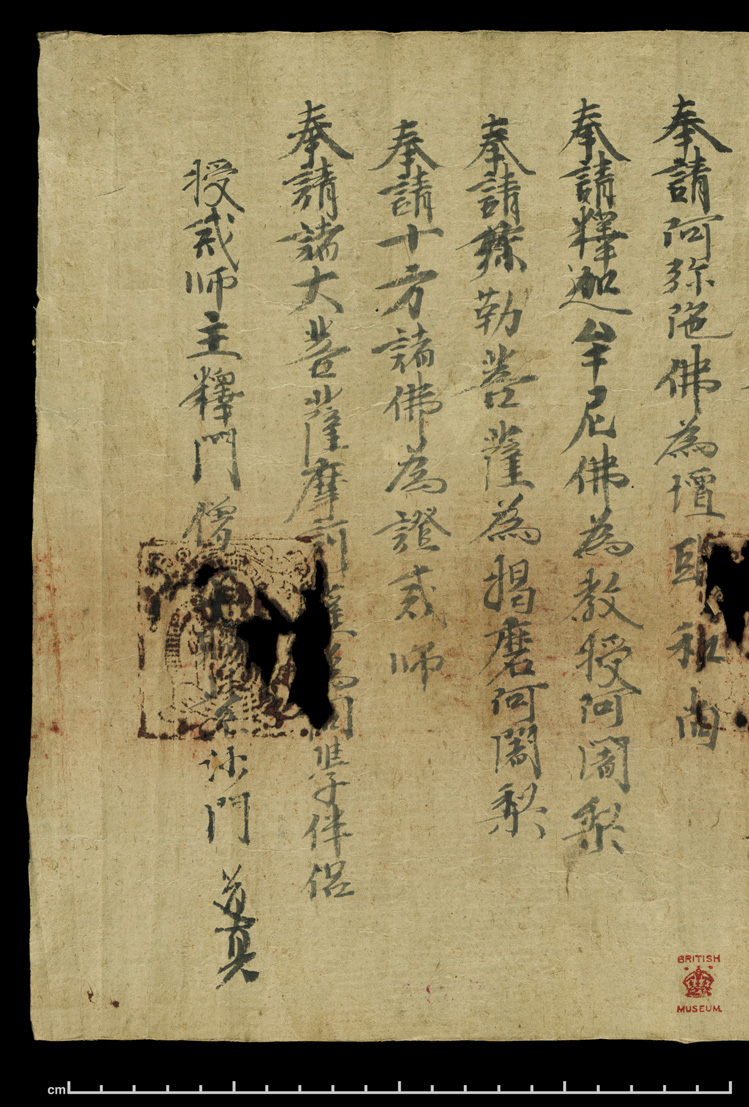 奉請阿弥陁佛為壇頭和尚
奉請釋迦牟尼佛為教授阿闍梨
奉請弥勒菩薩為揭磨阿闍梨
奉請十方諸佛為證戒師
奉請諸大菩薩摩訶薩為同學伴侣
授戒師主釋門僧沙門 道真
BRITISH
MUSEUM
cm